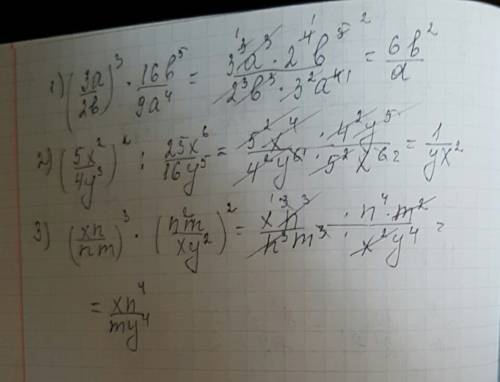 1) (3a/2b)^3 · 16b^5/9a^4 = 3^3a^3 · 2^4b^5/2^3b^3 · 3^2a^4 = 6b^2/a
2) (5x^2/4y^3)^2 : 25x^6/16y^5 = 5^2x^4/4^2y^6 · 4^2y^5/5^2x^6 = 1/yx^2
3) (xn/nm)^3 · (n^2m/xy^2)^2 = x^3n^3/n^3m^3 · n^4 · m^2/x^2y^4 =
= xn^4/my^4